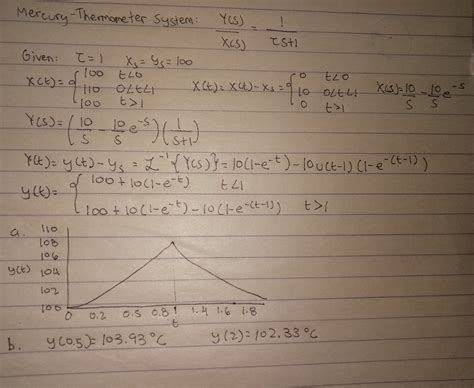 Mercury-Thermometer System: Y(s)/X(s) = 1/(τs+1)
Given: τ=1 Xs=Ys=100
x(t)={100 t<0 X(t)=x(t)-xs={0 t<0 X(s)=10/s - 10/s e^-s
110 0<t<1 10 0<t<1
100 t>1 0 t>1
Y(s)=(10/s - 10/s e^-s)(1/(s+1))
Y(t)=y(t)-ys=L^-1{Y(s)}=10(1-e^-t)-10u(t-1)(1-e^-(t-1))
y(t)={100+10(1-e^-t) t<1
100+10(1-e^-t)-10(1-e^-(t-1)) t>1
a. 110
108
106
y(t) 104
102
100
0 0.2 0.5 0.8 1 1.4 1.6 1.8
t
b. y(0.5)=103.93°C y(2)=102.33°C